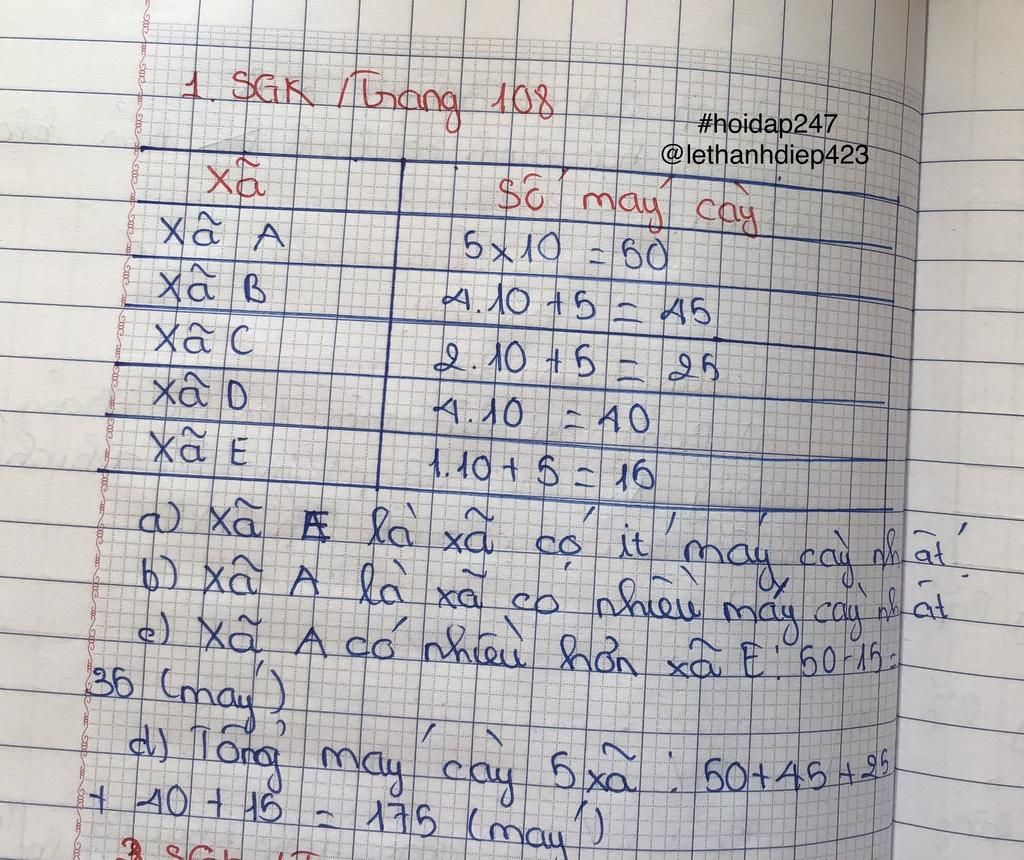 1. SGK /Trang 108
#hoidap247
@lethanhdiep423
Xã Số máy cày
Xã A 5x10 = 50
Xã B 4.10 + 5 = 45
Xã C 2.10 + 5 = 25
Xã D 4.10 = 40
Xã E 1.10 + 5 = 15
a) Xã E là xã có ít máy cày nhất.
b) Xã A là xã có nhiều máy cày nhất
c) Xã A có nhiều hơn xã E: 50-15=
35 (máy)
d) Tổng máy cày 5 xã : 50+45+25
+ 40 + 15 = 175 (máy)
SGK /T